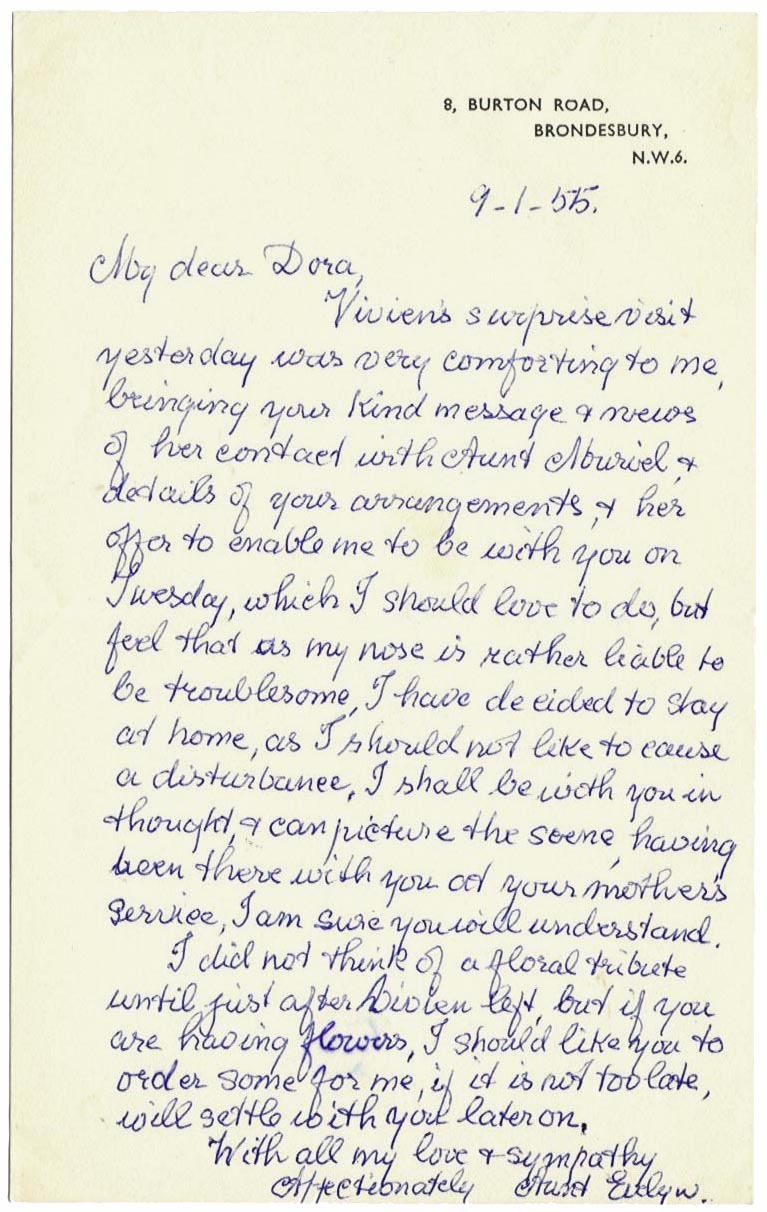 8, BURTON ROAD,
BRONDESBURY,
N.W.6.
9-1-55.
My dear Dora,
Vivien's surprise visit
yesterday was very comforting to me,
bringing your kind message & news
of her contact with Aunt Muriel, &
details of your arrangements, & her
offer to enable me to be with you on
Tuesday, which I should love to do, but
feel that as my nose is rather liable to
be troublesome, I have decided to stay
at home, as I should not like to cause
a disturbance, I shall be with you in
thought, & can picture the scene, having
been there with you at your mother's
service, I am sure you will understand.
I did not think of a floral tribute
until just after Vivien left, but if you
are having flowers, I should like you to
order some for me, if it is not too late,
will settle with you later on.
With all my love & sympathy
Affectionately Aunt Evelyn.